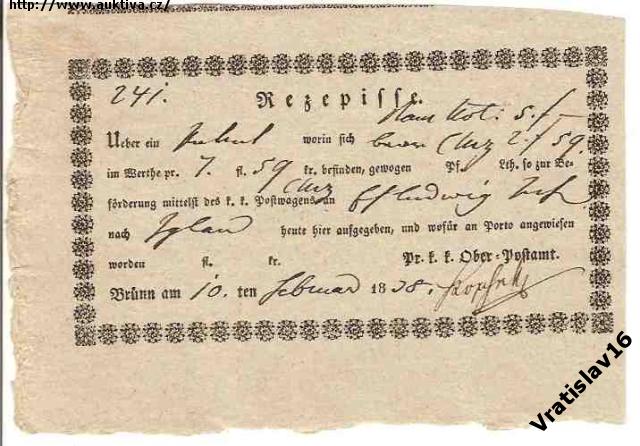 http://www.auktiva.cz/
241. Rezepisse.
5. f
Ueber ein worin sich 2. f 59.
im Werthe pr. 7. fl. 59 kr. befinden, gewogen Pf. Lth. so zur Be-
förderung mittelst des k. k. Postwagens an Ludwig
nach Iglau heute hier aufgegeben, und wofür an Porto angewiesen
worden fl. kr. Pr. k. k. Ober-Postamt.
Brünn am 10. ten Februar 1838.
Vratislav16